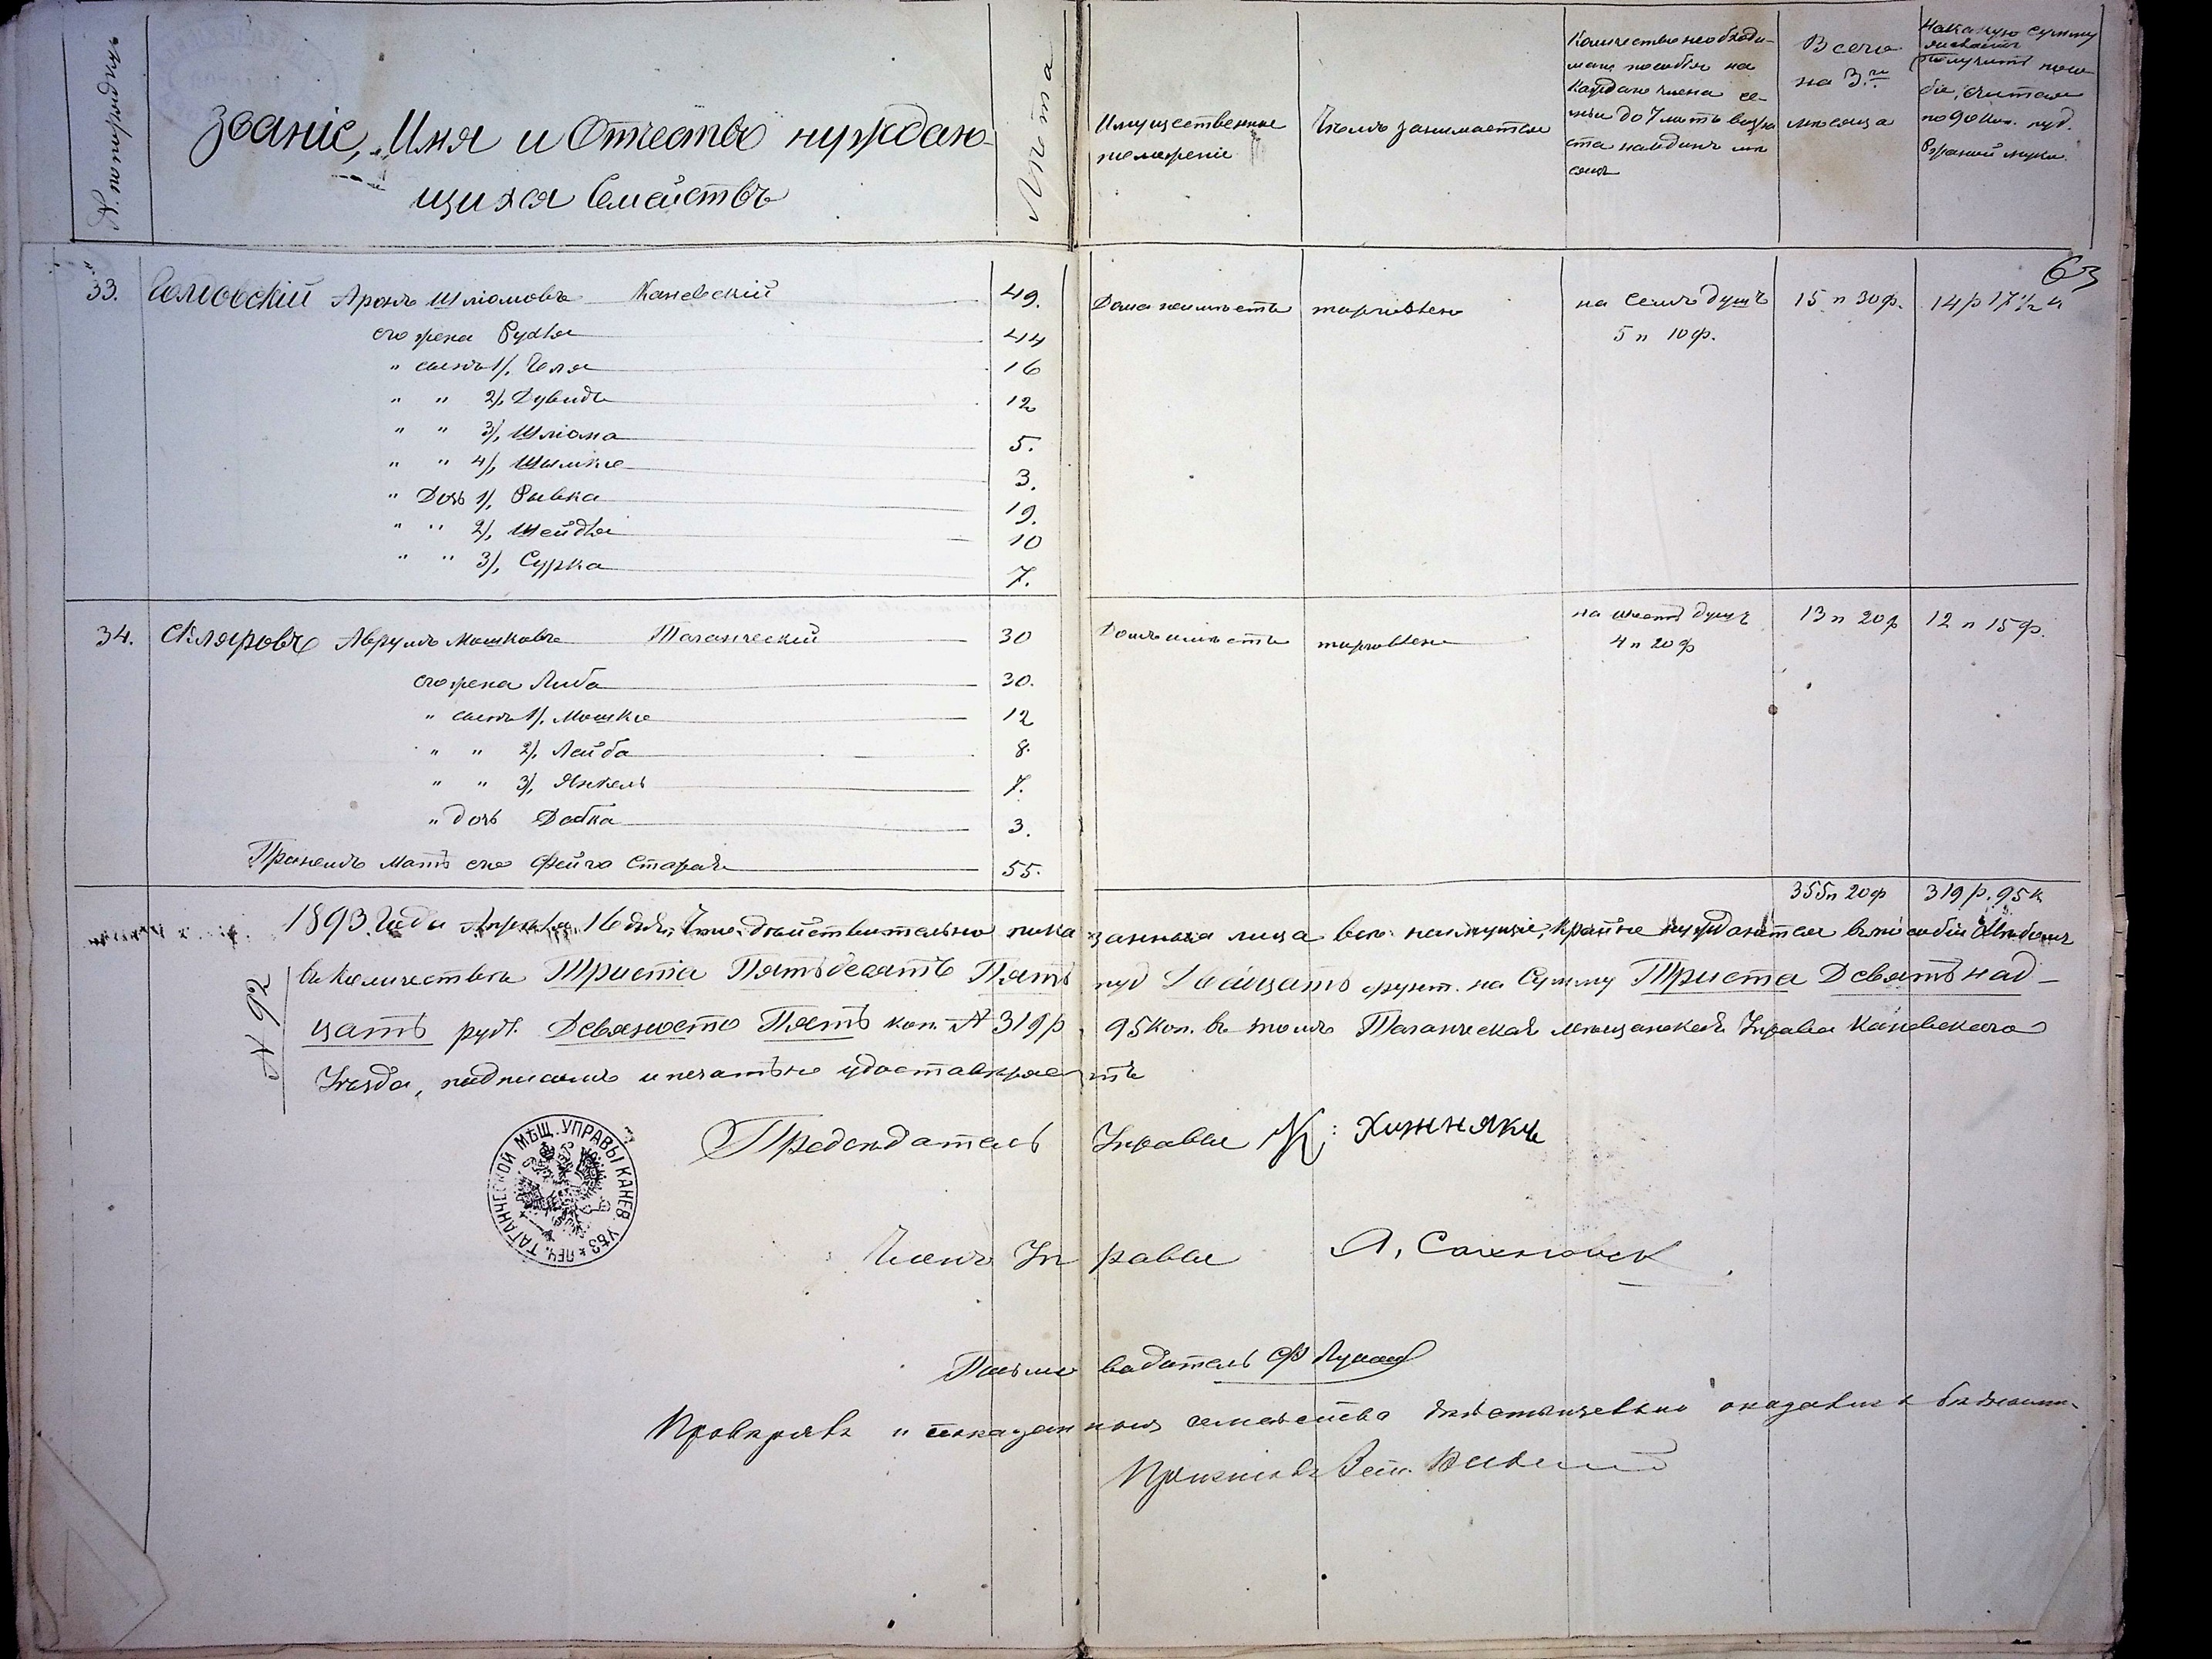 № по порядку
Званіе, Имя и Отчество нуждаю-
щихся Семействъ
Лѣта
Имущественное
положеніе
Чѣмъ занимается
Количество необходи-
маго пособія на
Каждаго члена се-
мьи до 7 лѣтъ возра
ста на одинъ мѣ
сяцъ
Всего
на 3.
мѣсяца
На какую сумму
получить посо-
біе, считая
по 90 коп. пуд.
Ржаной муки.
63
33.
Аронъ Шліомовъ Каневскій 49.
Дома неимѣетъ
торговлею
на Семь душъ
5 п 10 ф.
15 п 30 ф.
14 р 17 1/2 к
его жена Рухля 44
" сынъ 1/, Геля 16
" " 2/, Дувидъ 12
" " 3/, Шліома 5.
" " 4/, 3.
" Дочь 1/, Рывка 19.
" " 2/, Шейдля 10
" " 3/, Сурка 7.
34. Скляровъ Аврумъ Мошковъ Таганческій 30
Домъ имѣетъ
торговлею
на шесть душъ
4 п 20 ф
13 п 20 ф
12 п 15 ф.
его жена Либа 30.
" сынъ 1/. Мошко 12
" " 2/. Лейба 8.
" " 3/, Янкель 7.
" дочь Добка 3.
мать его Фейга Старая 55.
355 п 20 ф 319 р. 95 к
1893 Года Апрѣля 16 дня, Что дѣйствительно пока занныя лица всѣ неимущіе, крайне нуждаются въ пособіи хлѣбомъ
въ количествѣ Триста Пятьдесятъ Пять пуд Двадцать фунт. на Сумму Триста Девятнад-
цать руб. Девяносто Пять коп. 319 р. 95 коп. въ томъ Таганческая мѣщанская Управа Каневскаго
Уѣзда, подписомъ и печатью удостовѣряетъ
№ 92
ПЕЧ. ТАГАНЧЕСКОЙ МѢЩ. УПРАВЫ КАНЕВ. УѢЗ
Предсѣдатель Управы К: Хижнякъ
Членъ Управы А.
Письмоводитель Ф
Провѣрявъ показанныя семейства дѣйствительно оказались